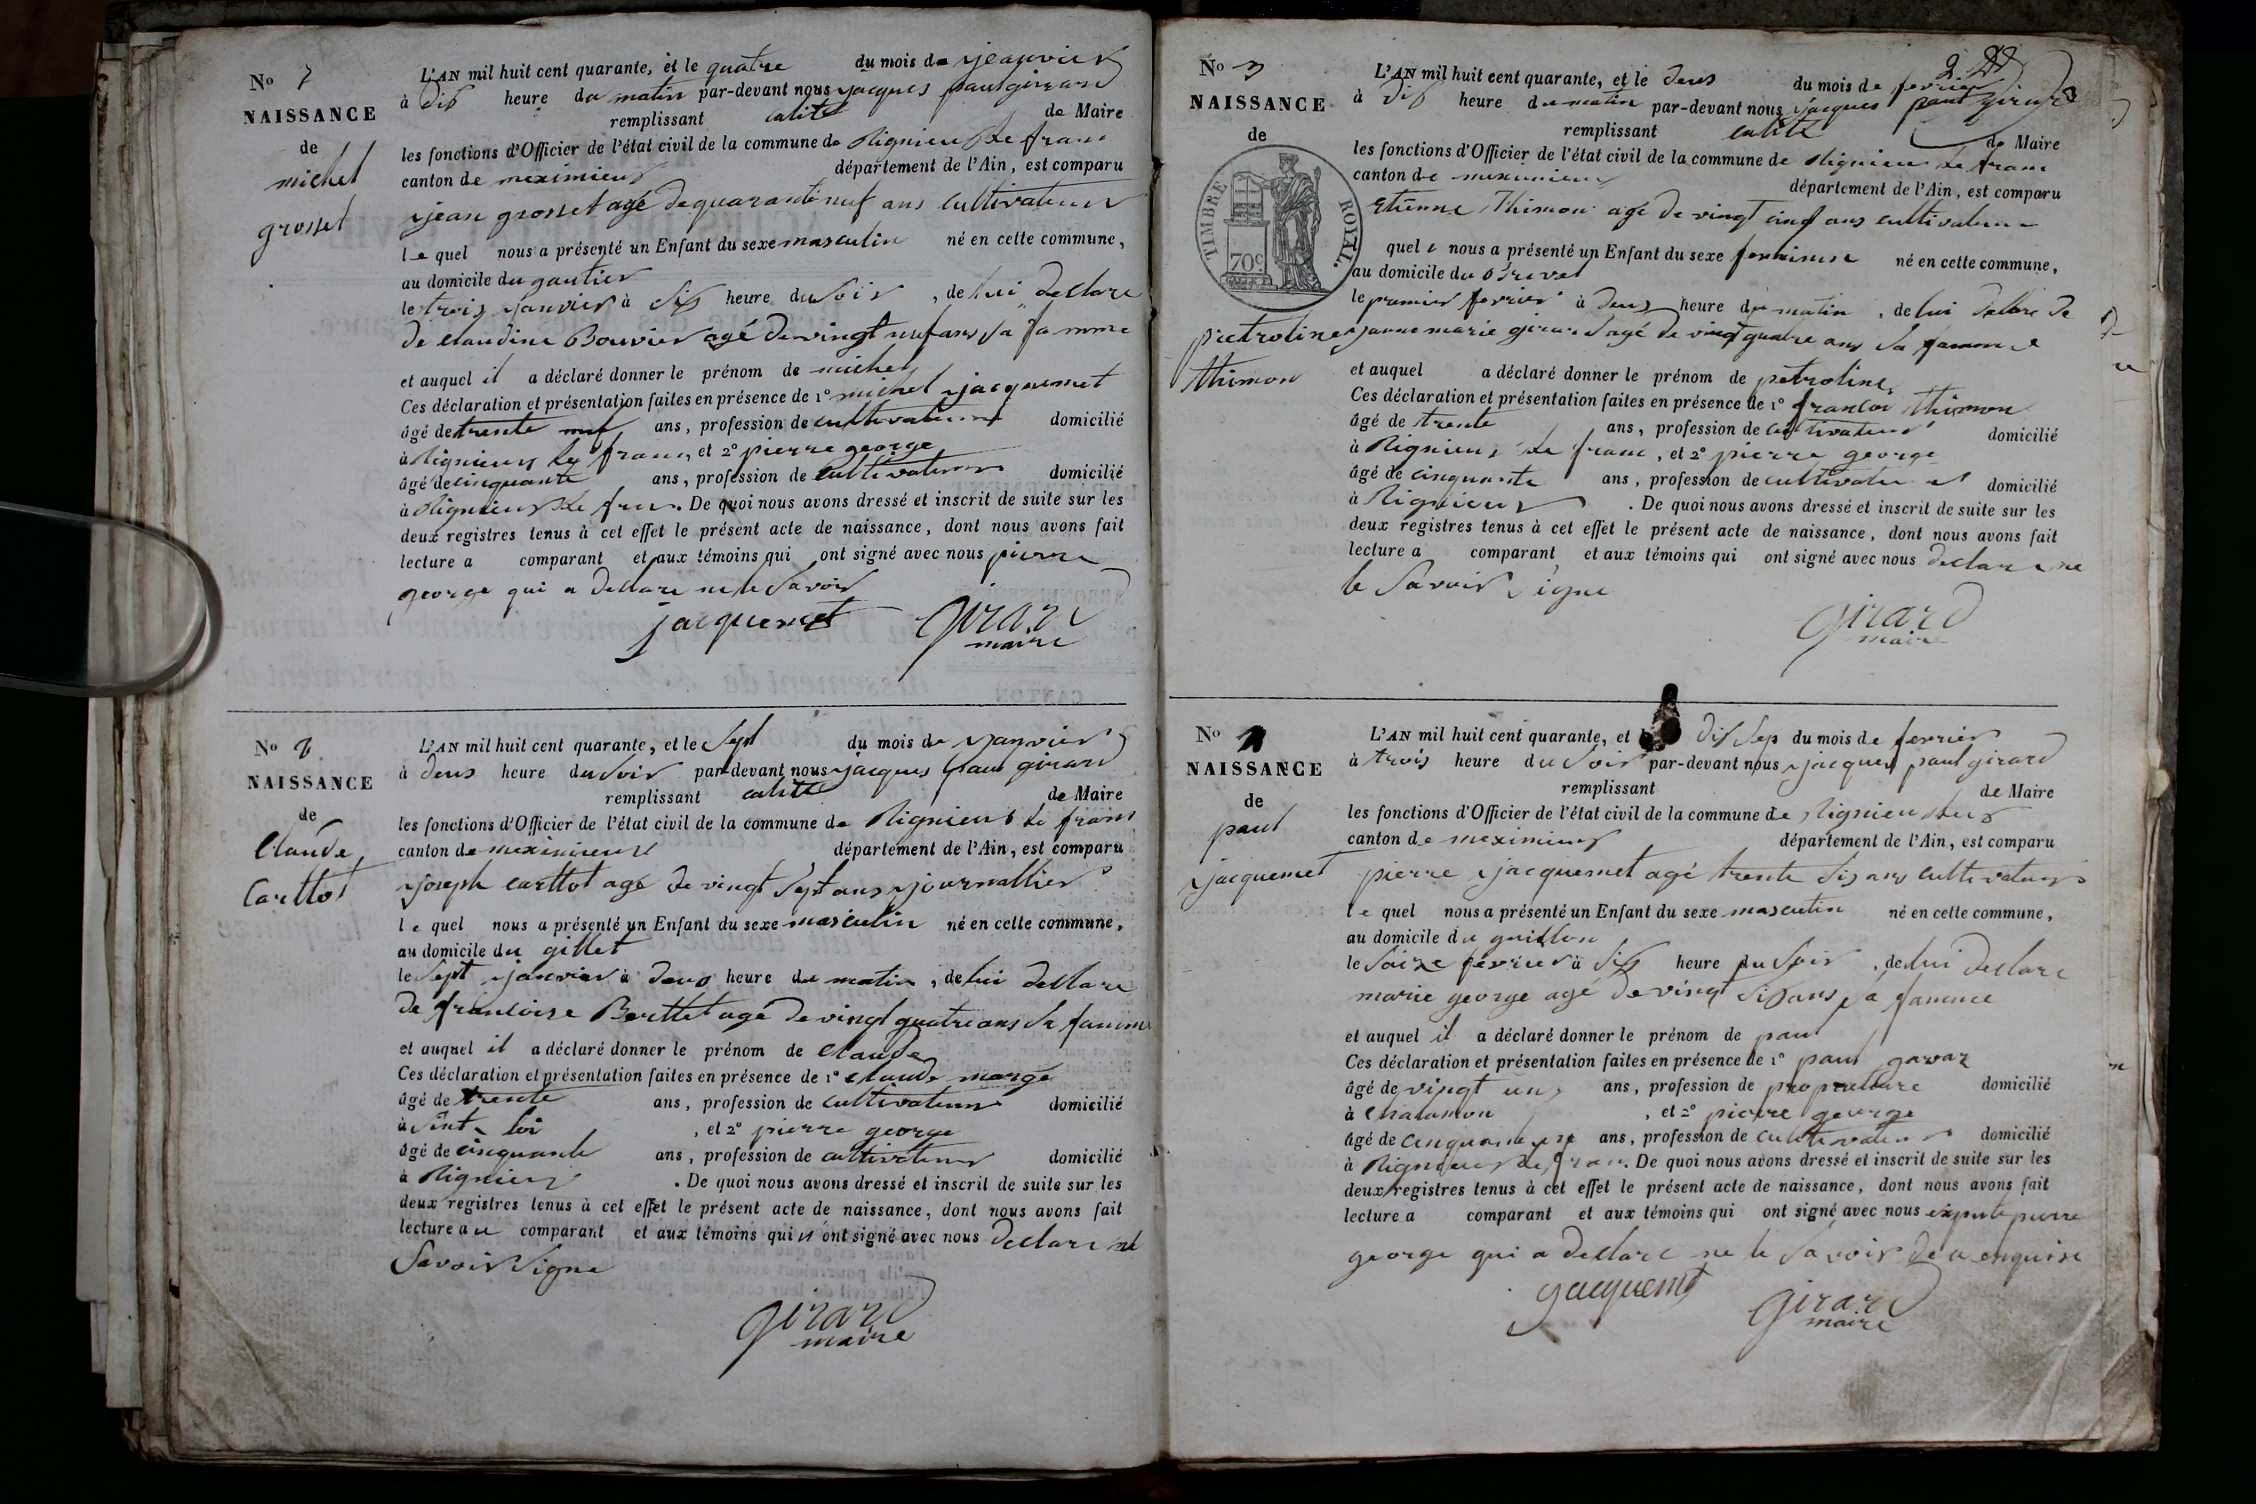 No 1
NAISSANCE
de
michel
grosset
L'AN mil huit cent quarante, et le quatre du mois de jeanvier
à dis heure du matin par-devant nous jacques paul girard
remplissant calité de Maire
les fonctions d'Officier de l'état civil de la commune de Rignieux le franc
canton de meximieux département de l'Ain, est comparu
jean grosset agé de quarante neuf ans cultivateur
le quel nous a présenté un Enfant du sexe masculin né en cette commune,
au domicile du gautier
le trois janvier à sis heure du soir, de lui declare
de claudine Bouvier agé de vingt neuf ans sa famme
et auquel il a déclaré donner le prénom de michel
Ces déclaration et présentation faites en présence de 1° michel jacquemet
âgé de trente neuf ans, profession de cultivateur domicilié
à Rignieux le franc, et 2° pierre george
âgé de cinquante ans, profession de cultivateur domicilié
à Rignieux le fran. De quoi nous avons dressé et inscrit de suite sur les
deux registres tenus à cet effet le présent acte de naissance, dont nous avons fait
lecture a comparant et aux témoins qui ont signé avec nous pierre
george qui a declare ne le savoir
jacquemet girard
maire
No 2
NAISSANCE
de
Claude
Carttot
L'AN mil huit cent quarante, et le sept du mois de janvier
à deus heure du soir par-devant nous jacques paul girard
remplissant calité de Maire
les fonctions d'Officier de l'état civil de la commune de Rignieux le franc
canton de meximieux département de l'Ain, est comparu
joseph carttot agé de vingt sept ans journallier
le quel nous a présenté un Enfant du sexe masculin né en cette commune,
au domicile du gillet
le sept janvier à deus heure du matin, de lui declare
de francoise Berttet agé de vingt quatre ans sa famme
et auquel il a déclaré donner le prénom de claude
Ces déclaration et présentation faites en présence de 1° claude margé
âgé de trente ans, profession de cultivateur domicilié
à sint loi, et 2° pierre george
âgé de cinquante ans, profession de cultivateur domicilié
à Rignieux. De quoi nous avons dressé et inscrit de suite sur les
deux registres tenus à cet effet le présent acte de naissance, dont nous avons fait
lecture au comparant et aux témoins qui n ont signé avec nous declare ne
savoir signe
girard
maire
No 3
NAISSANCE
de
TIMBRE ROYAL.
70c
pietroline
thimon
2
L'AN mil huit cent quarante, et le deus du mois de fevrier
à dis heure du matin par-devant nous jacques paul girard
remplissant calité de Maire
les fonctions d'Officier de l'état civil de la commune de Rignieux le franc
canton de meximieux département de l'Ain, est comparu
Etienne Thimon agé de vingt cinq ans cultivateur
quel e nous a présenté un Enfant du sexe feminine né en cette commune,
au domicile du Brevet
le premier fevrier à deus heure du matin, de lui declare de
janne marie girard agé de vingt quatre ans sa famme
et auquel a déclaré donner le prénom de petroline
Ces déclaration et présentation faites en présence de 1° francoi thimon
âgé de trente ans, profession de cultivateur domicilié
à Rignieux le franc, et 2° pierre george
âgé de cinquante ans, profession de cultivateur domicilié
à Rignieux. De quoi nous avons dressé et inscrit de suite sur les
deux registres tenus à cet effet le présent acte de naissance, dont nous avons fait
lecture a comparant et aux témoins qui ont signé avec nous declare ne
le savoir signe
girard
maire
No
NAISSANCE
de
paul
jacquemet
L'AN mil huit cent quarante, et dis sep du mois de fevrier
à trois heure du soir par-devant nous jacques paul girard
remplissant de Maire
les fonctions d'Officier de l'état civil de la commune de Rignieux
canton de meximieux département de l'Ain, est comparu
pierre jacquemet agé trente sis ans cultivateur
le quel nous a présenté un Enfant du sexe masculin né en cette commune,
au domicile du guillon
le saize fevrier à sis heure du soir, de lui declare
marie george agé de vingt sis ans sa famme
et auquel il a déclaré donner le prénom de paul
Ces déclaration et présentation faites en présence de 1° paul gavaz
âgé de vingt un ans, profession de propriettaire domicilié
à chalamon, et 2° pierre george
âgé de cinquante ans, profession de cultivateur domicilié
à Rignieux le fran. De quoi nous avons dressé et inscrit de suite sur les
deux registres tenus à cet effet le présent acte de naissance, dont nous avons fait
lecture a comparant et aux témoins qui ont signé avec nous pierre
george qui a declare ne le savoir de a enquise
jacquemet girard
maire